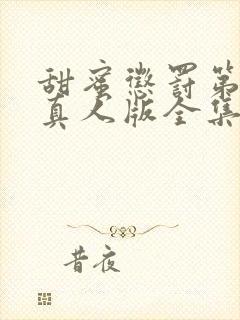 甜蜜懲罰第
真人版全集
昔夜